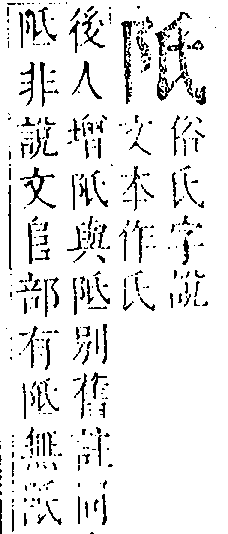 𨸝
俗氏字說
文本作氏
後人增𨸝與阺別舊註同
阺非說文𨸏部有阺無𨸝